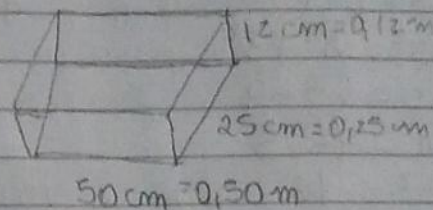 12 cm = 0,12 m
25 cm = 0,25 m
50 cm = 0,50 m